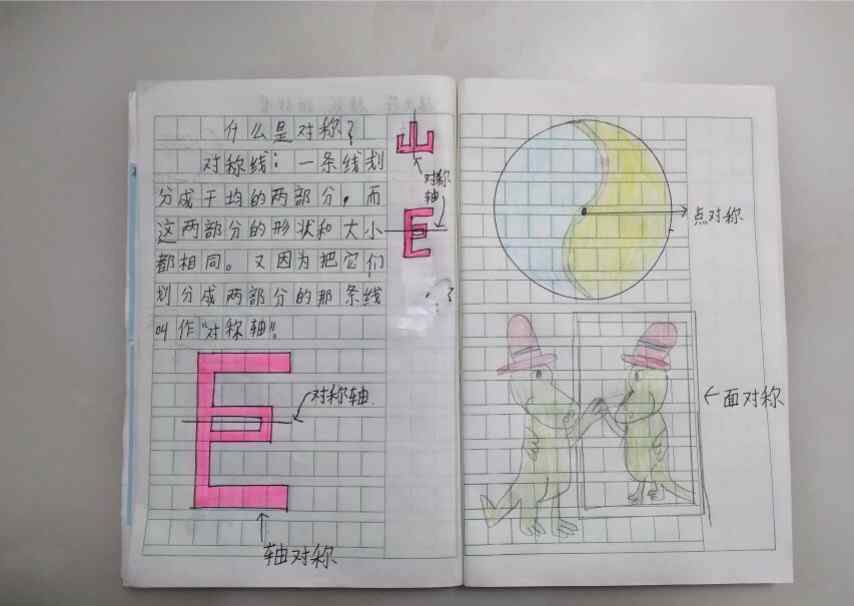 什么是对称？
对称线：一条线划
分成平均的两部分，而
这两部分的形状和大小
都相同。又因为把它们
划分成两部分的那条线
叫作“对称轴”。
对称
轴
对称轴
轴对称
点对称
面对称